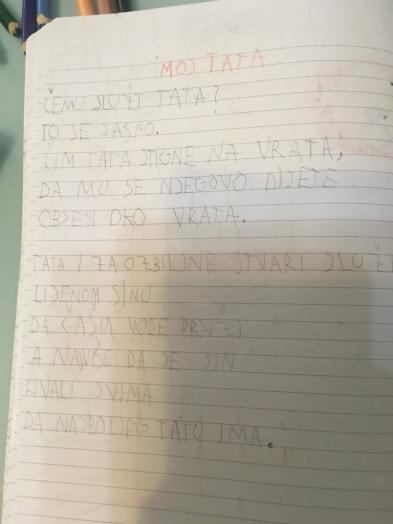 MOJ TATA
ČEMU SLUŽI TATA?
TO JE JASNO.
ČIM TATA STIGNE NA VRATA,
DA MU SE NJEGOVO DIJETE
OBJESI OKO VRATA.
TATA I ZA OZBILJNE STVARI SLUŽI
SINU
DA ČAŠU VODE PRUŽI
A NAJVIŠE DA SE SIN
HVALI SVIMA
DA NAJBOLJEG TATU IMA.